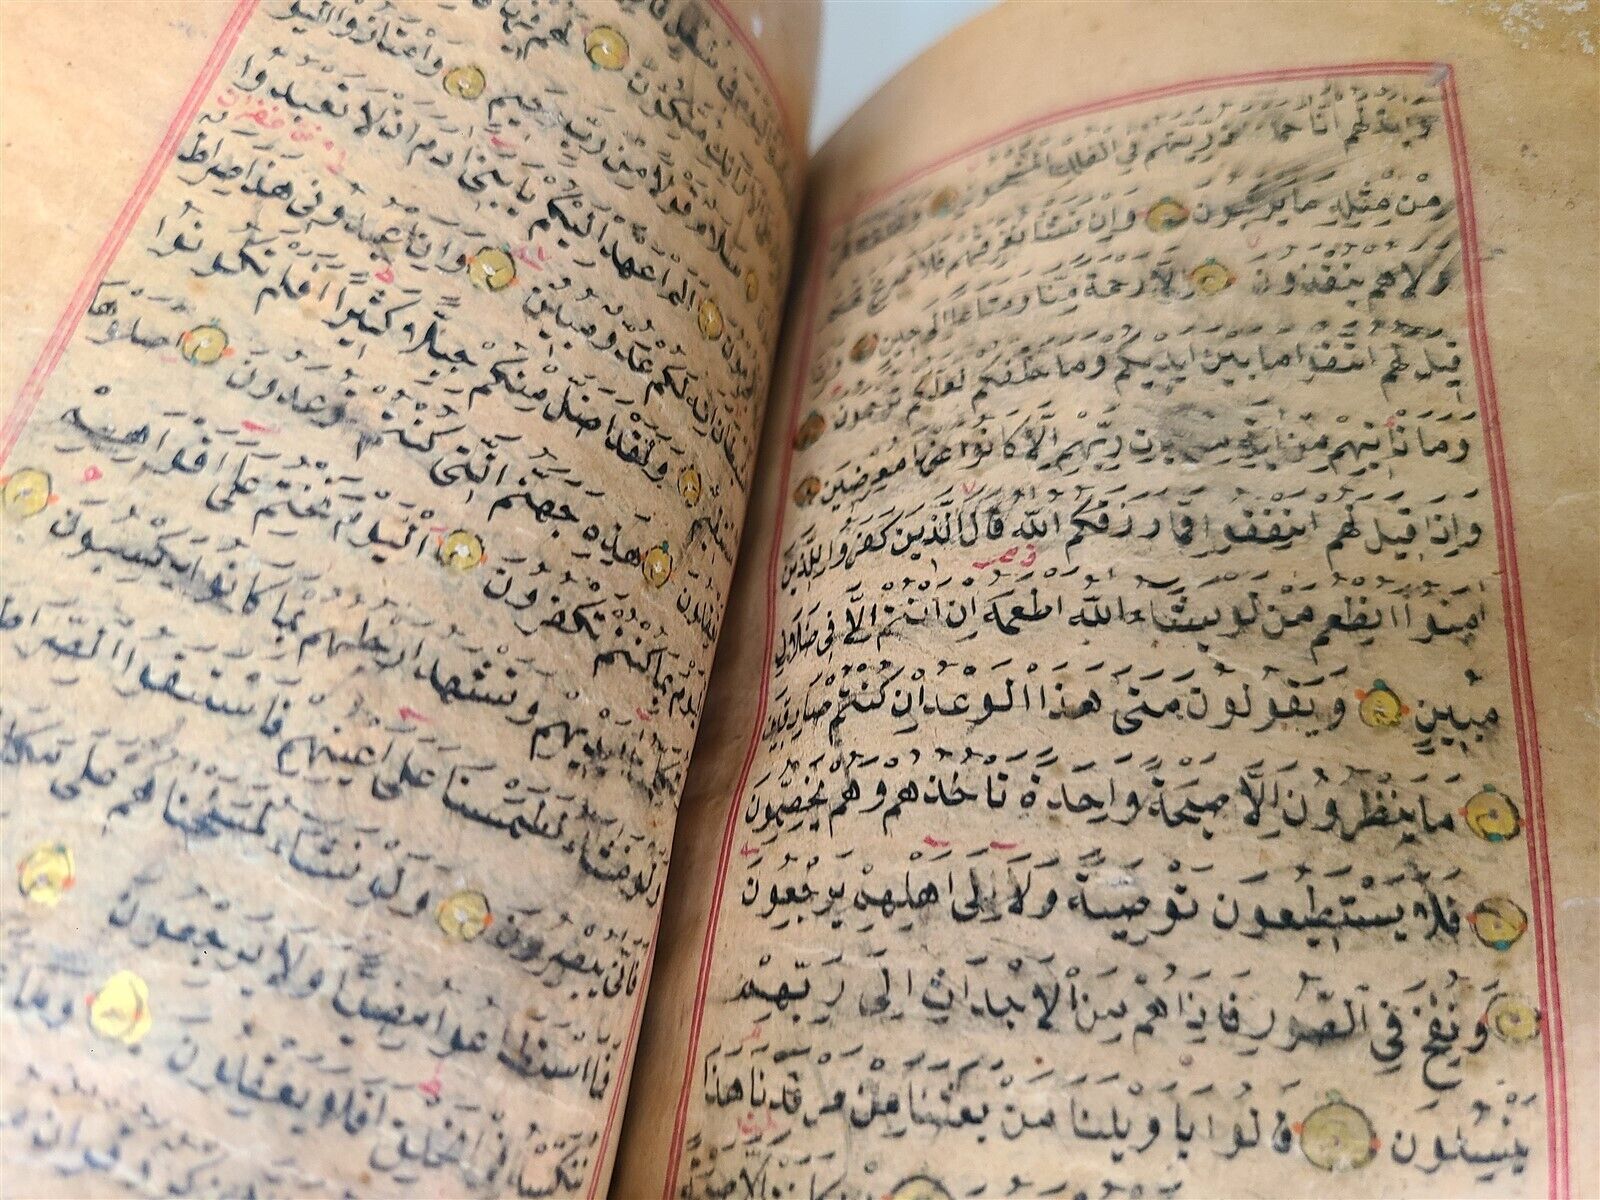 وَاٰيَةٌ لَهُمْ اَنَّا حَمَلْنَا ذُرِّيَّتَهُمْ فِي الْفُلْكِ الْمَشْحُونِ
مِنْ مِثْلِهِ مَا يَرْكَبُونَ وَاِنْ نَشَأْ نُغْرِقْهُمْ فَلَا صَرِيخَ لَهُمْ
وَلَا هُمْ يُنْقَذُونَ اِلَّا رَحْمَةً مِنَّا وَمَتَاعًا اِلٰى حِينٍ وَاِذَا
قِيلَ لَهُمُ اتَّقُوا مَا بَيْنَ اَيْدِيكُمْ وَمَا خَلْفَكُمْ لَعَلَّكُمْ تُرْحَمُونَ
وَمَا تَأْتِيهِمْ مِنْ اٰيَةٍ مِنْ اٰيَاتِ رَبِّهِمْ اِلَّا كَانُوا عَنْهَا مُعْرِضِينَ
وَاِذَا قِيلَ لَهُمْ اَنْفِقُوا مِمَّا رَزَقَكُمُ اللّٰهُ قَالَ الَّذِينَ كَفَرُوا لِلَّذِينَ
اٰمَنُوا اَنُطْعِمُ مَنْ لَوْ يَشَاءُ اللّٰهُ اَطْعَمَهُ اِنْ اَنْتُمْ اِلَّا فِي ضَلَالٍ
مُبِينٍ وَيَقُولُونَ مَتٰى هٰذَا الْوَعْدُ اِنْ كُنْتُمْ صَادِقِينَ
مَا يَنْظُرُونَ اِلَّا صَيْحَةً وَاحِدَةً تَأْخُذُهُمْ وَهُمْ يَخِصِّمُونَ
فَلَا يَسْتَطِيعُونَ تَوْصِيَةً وَلَا اِلٰى اَهْلِهِمْ يَرْجِعُونَ
وَنُفِخَ فِي الصُّورِ فَاِذَا هُمْ مِنَ الْاَجْدَاثِ اِلٰى رَبِّهِمْ
يَنْسِلُونَ قَالُوا يَا وَيْلَنَا مَنْ بَعَثَنَا مِنْ مَرْقَدِنَا هٰذَا
مُتَّكِؤُنَ لَهُمْ فِيهَا
سَلَامٌ قَوْلًا مِنْ رَبٍّ رَحِيمٍ وَامْتَازُوا الْيَوْمَ
اَلَمْ اَعْهَدْ اِلَيْكُمْ يَا بَنِي اٰدَمَ اَنْ لَا تَعْبُدُوا
الشَّيْطَانَ اِنَّهُ لَكُمْ عَدُوٌّ مُبِينٌ وَاَنِ اعْبُدُونِي هٰذَا صِرَاطٌ
وَلَقَدْ اَضَلَّ مِنْكُمْ جِبِلًّا كَثِيرًا اَفَلَمْ تَكُونُوا
تَعْقِلُونَ هٰذِهِ جَهَنَّمُ الَّتِي كُنْتُمْ تُوعَدُونَ اِصْلَوْهَا
الْيَوْمَ بِمَا كُنْتُمْ تَكْفُرُونَ اَلْيَوْمَ نَخْتِمُ عَلٰى اَفْوَاهِهِمْ
وَتُكَلِّمُنَا اَيْدِيهِمْ وَتَشْهَدُ اَرْجُلُهُمْ بِمَا كَانُوا يَكْسِبُونَ
وَلَوْ نَشَاءُ لَطَمَسْنَا عَلٰى اَعْيُنِهِمْ فَاسْتَبَقُوا الصِّرَاطَ
فَاَنّٰى يُبْصِرُونَ وَلَوْ نَشَاءُ لَمَسَخْنَاهُمْ عَلٰى مَكَانَتِهِمْ
فَمَا اسْتَطَاعُوا مُضِيًّا وَلَا يَرْجِعُونَ
نُنَكِّسْهُ فِي الْخَلْقِ اَفَلَا يَعْقِلُونَ وَمَا